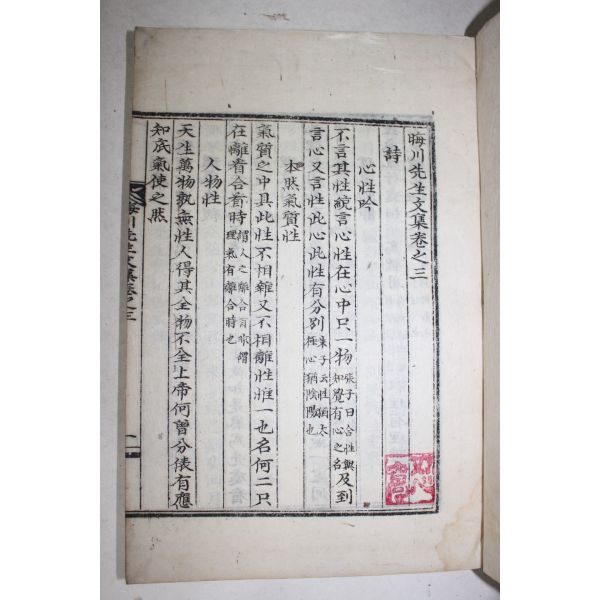 晦川先生文集卷之三
詩
心性吟
不言其性統言心性在心中只一物張子曰合性與知覺有心之名及到
言心又言性此心此性有分別朱子云性猶太極心猶陰陽也
本然氣質性
氣質之中具此性不相雜又不相離性惟一也名何二只
在離看合看時謂人之離合言非謂理氣有離合時也
人物性
天生萬物孰無性人得其全物不全上帝何曾分俵有應
知底氣使之然
晦川先生文集卷之三